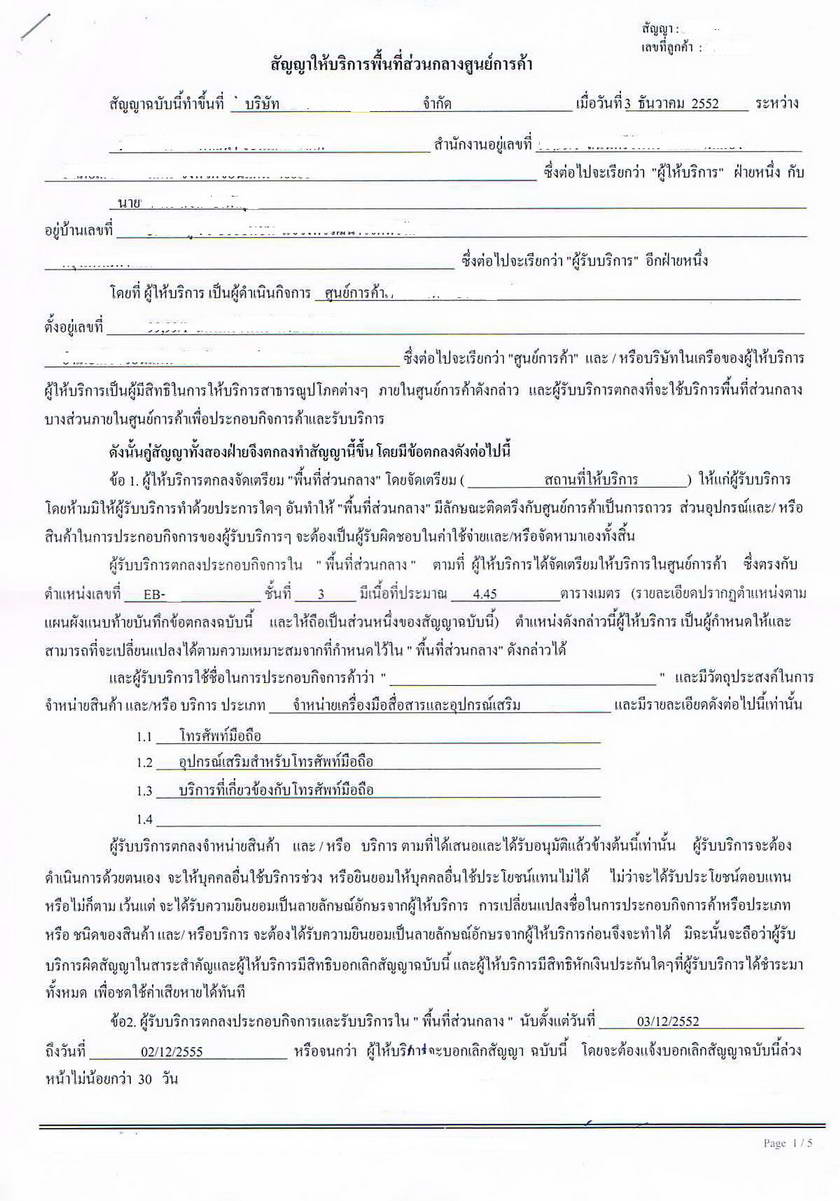 สัญญา :
เลขที่ลูกค้า :
สัญญาให้บริการพื้นที่ส่วนกลางศูนย์การค้า
สัญญาฉบับนี้ทำขึ้นที่ บริษัท จำกัด เมื่อวันที่ 3 ธันวาคม 2552 ระหว่าง
สำนักงานอยู่เลขที่
ซึ่งต่อไปจะเรียกว่า "ผู้ให้บริการ" ฝ่ายหนึ่ง กับ
นาย
อยู่บ้านเลขที่
ซึ่งต่อไปจะเรียกว่า "ผู้รับบริการ" อีกฝ่ายหนึ่ง
โดยที่ ผู้ให้บริการ เป็นผู้ดำเนินกิจการ ศูนย์การค้า
ตั้งอยู่เลขที่
ซึ่งต่อไปจะเรียกว่า "ศูนย์การค้า" และ / หรือบริษัทในเครือของผู้ให้บริการ
ผู้ให้บริการเป็นผู้มีสิทธิในการให้บริการสาธารณูปโภคต่างๆ ภายในศูนย์การค้าดังกล่าว และผู้รับบริการตกลงที่จะใช้บริการพื้นที่ส่วนกลาง
บางส่วนภายในศูนย์การค้าเพื่อประกอบกิจการค้าและรับบริการ
ดังนั้นคู่สัญญาทั้งสองฝ่ายจึงตกลงทำสัญญานี้ขึ้น โดยมีข้อตกลงดังต่อไปนี้
ข้อ 1. ผู้ให้บริการตกลงจัดเตรียม "พื้นที่ส่วนกลาง" โดยจัดเตรียม ( สถานที่ให้บริการ ) ให้แก่ผู้รับบริการ
โดยห้ามมิให้ผู้รับบริการทำด้วยประการใดๆ อันทำให้ "พื้นที่ส่วนกลาง" มีลักษณะติดตรึงกับศูนย์การค้าเป็นการถาวร ส่วนอุปกรณ์และ/ หรือ
สินค้าในการประกอบกิจการของผู้รับบริการๆ จะต้องเป็นผู้รับผิดชอบในค่าใช้จ่ายและ/หรือจัดหามาเองทั้งสิ้น
ผู้รับบริการตกลงประกอบกิจการใน " พื้นที่ส่วนกลาง " ตามที่ ผู้ให้บริการได้จัดเตรียมให้บริการในศูนย์การค้า ซึ่งตรงกับ
ตำแหน่งเลขที่ EB- ชั้นที่ 3 มีเนื้อที่ประมาณ 4.45 ตารางเมตร (รายละเอียดปรากฏตำแหน่งตาม
แผนผังแนบท้ายบันทึกข้อตกลงฉบับนี้ และให้ถือเป็นส่วนหนึ่งของสัญญาฉบับนี้) ตำแหน่งดังกล่าวนี้ผู้ให้บริการ เป็นผู้กำหนดให้และ
สามารถที่จะเปลี่ยนแปลงได้ตามความเหมาะสมจากที่กำหนดไว้ใน " พื้นที่ส่วนกลาง" ดังกล่าวได้
และผู้รับบริการใช้ชื่อในการประกอบกิจการค้าว่า " " และมีวัตถุประสงค์ในการ
จำหน่ายสินค้า และ/หรือ บริการ ประเภท จำหน่ายเครื่องมือสื่อสารและอุปกรณ์เสริม และมีรายละเอียดดังต่อไปนี้เท่านั้น
1.1 โทรศัพท์มือถือ
1.2 อุปกรณ์เสริมสำหรับโทรศัพท์มือถือ
1.3 บริการที่เกี่ยวข้องกับโทรศัพท์มือถือ
1.4
ผู้รับบริการตกลงจำหน่ายสินค้า และ / หรือ บริการ ตามที่ได้เสนอและได้รับอนุมัติแล้วข้างต้นนี้เท่านั้น ผู้รับบริการจะต้อง
ดำเนินการด้วยตนเอง จะให้บุคคลอื่นใช้บริการช่วง หรือยินยอมให้บุคคลอื่นใช้ประโยชน์แทนไม่ได้ ไม่ว่าจะได้รับประโยชน์ตอบแทน
หรือไม่ก็ตาม เว้นแต่ จะได้รับความยินยอมเป็นลายลักษณ์อักษรจากผู้ให้บริการ การเปลี่ยนแปลงชื่อในการประกอบกิจการค้าหรือประเภท
หรือ ชนิดของสินค้า และ/ หรือบริการ จะต้องได้รับความยินยอมเป็นลายลักษณ์อักษรจากผู้ให้บริการก่อนจึงจะทำได้ มิฉะนั้นจะถือว่าผู้รับ
บริการผิดสัญญาในสาระสำคัญและผู้ให้บริการมีสิทธิบอกเลิกสัญญาฉบับนี้ และผู้ให้บริการมีสิทธิหักเงินประกันใดๆที่ผู้รับบริการได้ชำระมา
ทั้งหมด เพื่อชดใช้ค่าเสียหายได้ทันที
ข้อ2. ผู้รับบริการตกลงประกอบกิจการและรับบริการใน " พื้นที่ส่วนกลาง " นับตั้งแต่วันที่ 03/12/2552
ถึงวันที่ 02/12/2555 หรือจนกว่า ผู้ให้บริการจะบอกเลิกสัญญา ฉบับนี้ โดยจะต้องแจ้งบอกเลิกสัญญาฉบับนี้ล่วง
หน้าไม่น้อยกว่า 30 วัน
Page 1 / 5